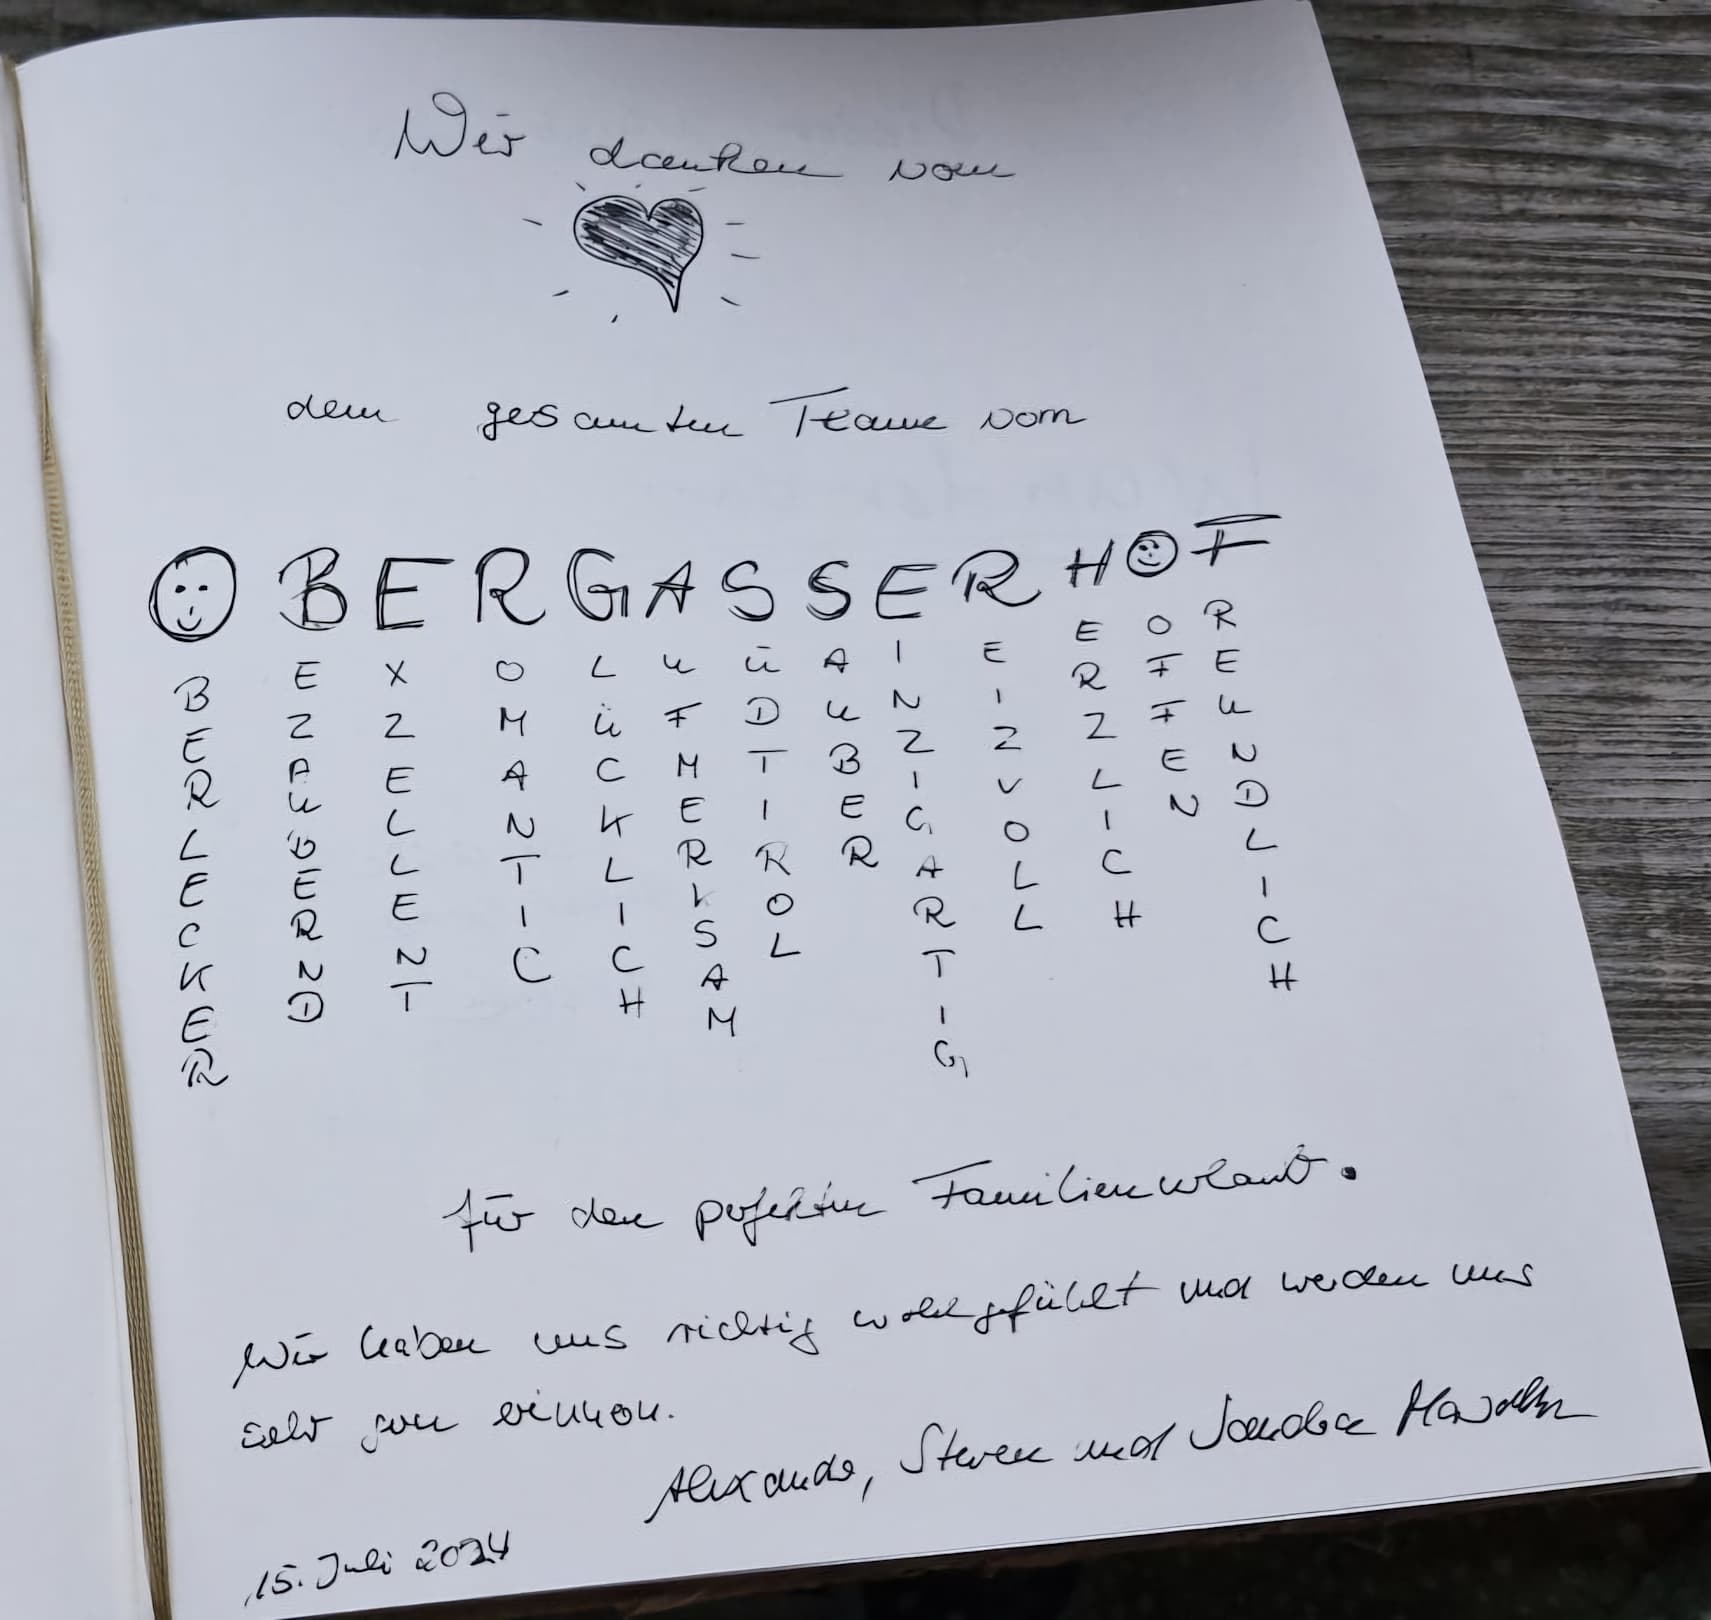 Wir danken von
dem gesamten Team vom
OBERGASSERHOF
BERLECKER
EZAUBERND
XZELLENT
OMANTIC
LÜCKLICH
UFMERKSAM
ÜDTIROL
AUBER
INZIGARTIG
EIZVOLL
ERZLICH
OFFEN
REUNDLICH
für den perfekten Familienurlaub.
Wir haben uns richtig wohlgefühlt und werden uns
sehr gern erinnern.
Alexander, Steven und Sandra
15. Juli 2024